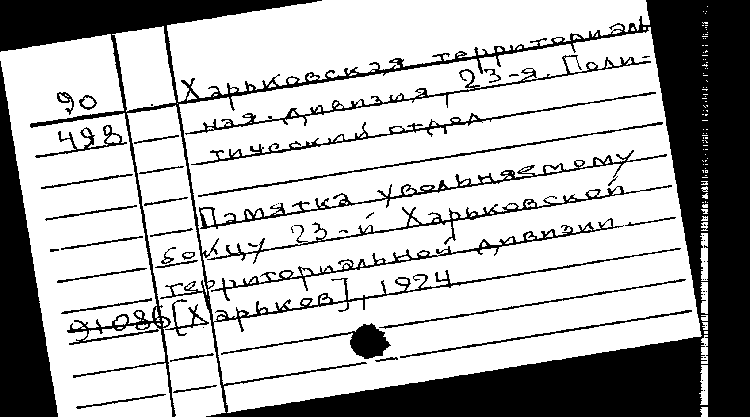 Харьковская территориаль
90 ная дивизия, 23-я. Поли-
498 тический отдел.
Памятка увольняемому
бойцу 23-й Харьковской
территориальной дивизии.
91086 [Харьков], 1924